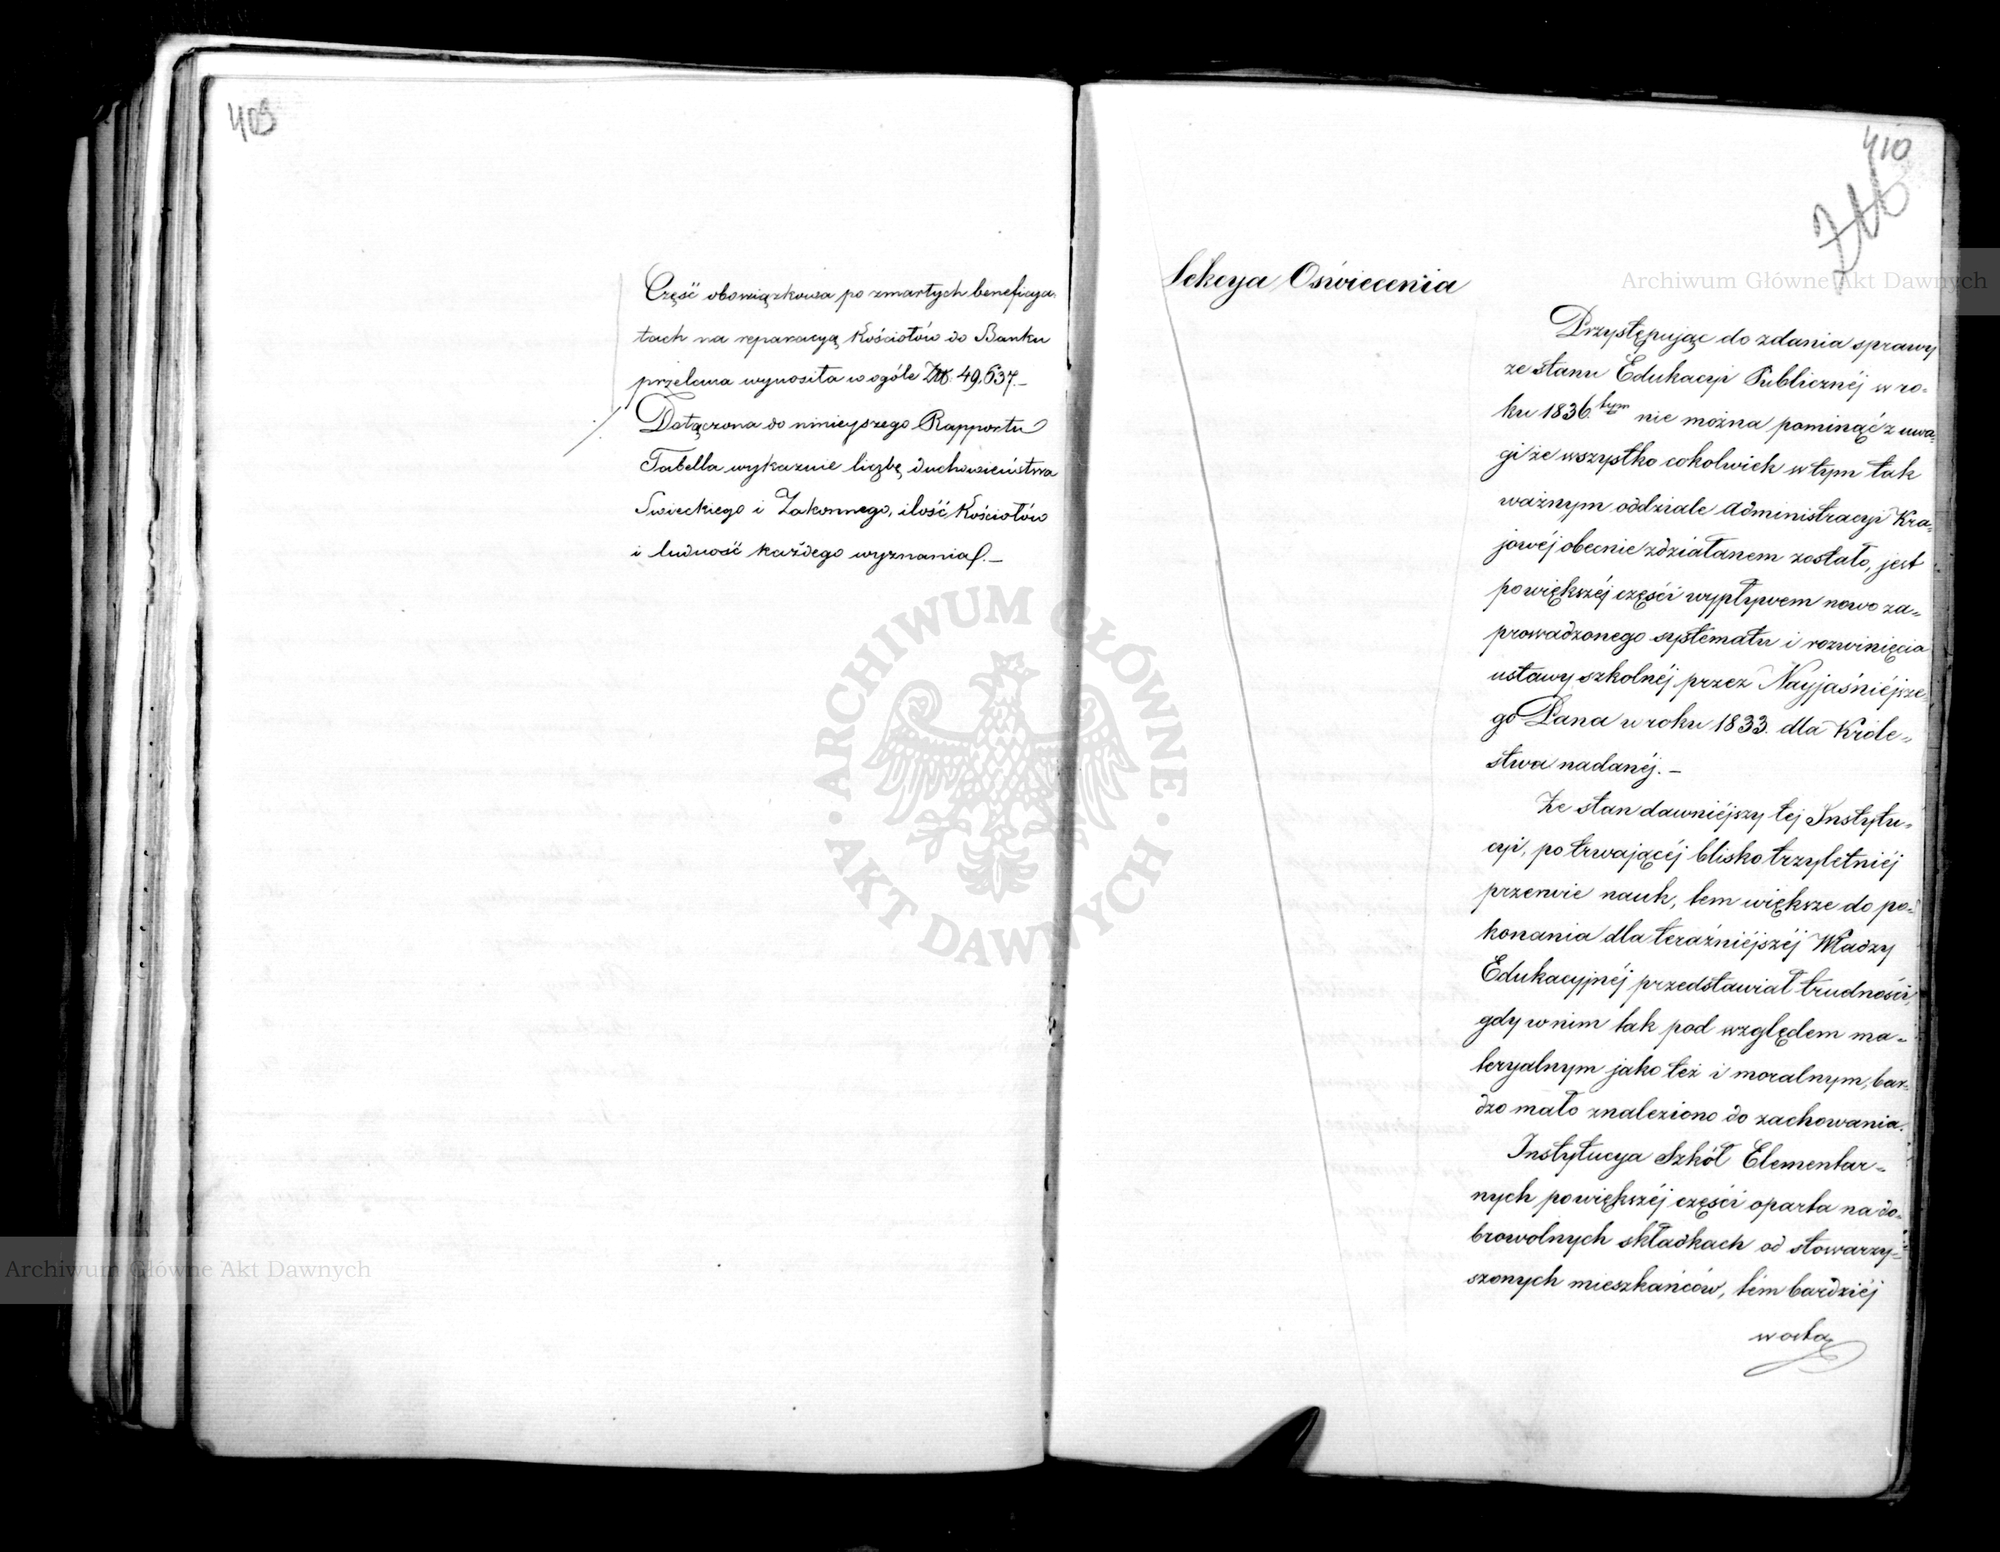 409
Część obowiązkowa po zmarłych beneficya-
tach na reparacyą Kościołów do Banku
przelana wynosiła w ogóle Złł. 49,637.—
Dołączona do niniejszego Rapportu
Tabella wykazuie liczbę duchowieństwa
Swieckiego i Zakonnego, ilość Kościołów
i ludność każdego wyznania.—
410
Sekcya Oświecenia
Archiwum Główne Akt Dawnych
Przystępując do zdania sprawy
ze stanu Edukacyi Publicznéj w ro-
ku 1836.tym nie można pominąć z uwa-
gi że wszystko cokolwiek w tym tak
ważnym oddziale Administracyi Kra-
jowéj obecnie zdziałanem zostało, jest
po większéj części wypływem nowo za-
prowadzonego systematu i rozwinięcia
ustawy szkolnéj przez Nayjaśniéjsze-
go Pana w roku 1833. dla Króle-
stwa nadanéj.—
Że stan dawniéjszy téj Instytu-
cyi, po trwającéj blisko trzyletniéj
przerwie nauk, tem większe do po-
konania dla teraźniéjszéj Władzy
Edukacyjnéj przedstawiał trudności,
gdy w nim tak pod względem ma-
teryalnym jako też i moralnym, bar-
dzo mało znaleziono do zachowania.
Instytucya Szkół Elementar-
nych po większéj części oparta na do-
browolnych składkach od stowarzy-
szonych mieszkańców, tém bardziéj
ARCHIWUM GŁÓWNE AKT DAWNYCH
Archiwum Główne Akt Dawnych